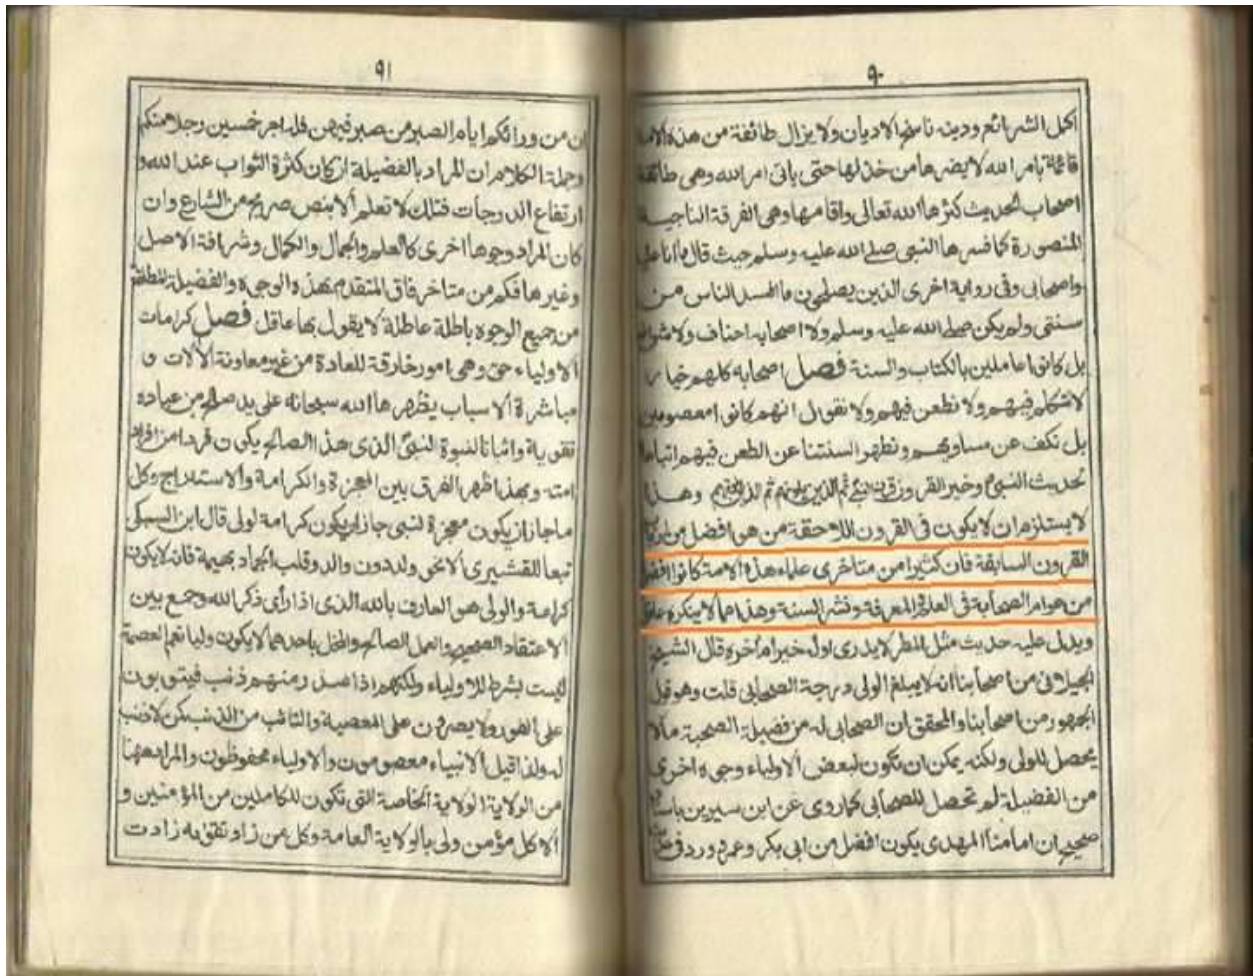 ٩٠
اكمل الشرائع ودينه ناسخ الاديان ولا يزال طائفة من هذه الامة
قائمة بامر الله لا يضرها من خذلها حتى ياتى امر الله وهى طائفة
اصحاب الحديث كثرها الله تعالى واقامها وهى الفرقة الناجية
المنصورة كما فسرها النبى صلے الله عليه وسلم حيث قال ما انا عليه
واصحابى وفى رواية اخرى الذين يصلحون ما افسد الناس من
سنتى ولم يكن صلے الله عليه وسلم ولا اصحابه احناف ولا
بل كانوا عاملين بالكتاب والسنة فصل اصحابه كلهم خيار
لا نتكلم فيهم ولا نطعن فيهم ولا نقول انهم كانوا معصومين
بل نكف عن مساويهم ونطهر السنتنا عن الطعن فيهم اتباعا
لحديث النبى وخير القرون قرنى ثم الذين يلونهم ثم الذين يلونهم وهذا
لا يستلزم ان لا يكون فى القرون اللاحقة من هو افضل من
القرون السابقة فان كثيرا من متاخرى علماء هذه الامة كانوا افضل
من عوام الصحابة فى العلم والمعرفة ونشر السنة وهذا مما لا ينكره عاقل
ويدل عليه حديث مثل المطر لا يدرى اوله خير ام أخره قال الشيخ
الجيلانى من اصحابنا انه لا يبلغ الولى درجة الصحابى قلت وهو قول
الجمهور من اصحابنا والمحقق ان الصحابى له من فضيلة الصحبة مالا
يحصل للولى ولكنه يمكن ان تكون لبعض الاولياء وجوه اخرى
من الفضيلة لم تحصل للصحابى كما روى عن ابن سيرين باسناد
صحيح ان امامنا المهدى يكون افضل من ابى بكر وعمر وورد فى
٩١
ان من ورائكم ايام الصبر من صبر فيهن فله اجر خمسين رجلا منكم
وجملة الكلام ان المراد بالفضيلة ان كان كثرة الثواب عند الله و
ارتفاع الدرجات فتلك لا تعلم الا بنص صريح من الشارع وان
كان المراد وجوها اخرى كالعلم والجمال والكمال وشرافة الاصل
وغيرها فكم من متاخر فاق المتقدم بهذه الوجوه والفضيلة المطلقة
من جميع الوجوه باطلة عاطلة لا يقول بها عاقل فصل كرامات
الاولياء حق وهى امور خارقة للعادة من غير معاونة الألات و
مباشرة الاسباب يظهرها الله سبحانه على يد صالح من عباده
تقوية واثباتا لنبوة النبى الذى هذا الصالح يكون فردا من افراد
امته وبهذا ظهر الفرق بين المعجزة والكرامة والاستدراج وكل
ما جاز ان يكون معجزة لنبى جاز ان يكون كرامة لولى قال ابن السبكى
تبعا للقشيرى الا نحو ولد دون والد وقلب الجماد بهيمة فانه لا يكون
كرامة والولى هو العارف بالله الذى اذا رأى ذكر الله وجمع بين
الاعتقاد الصحيح والعمل الصالح والمخل باحدهما لا يكون وليا نعم العصمة
ليست بشرط للاولياء ولكنهم اذا صدر منهم ذنب فيتوبون
على الفور ولا يصرون على المعصية والتائب من الذنب كمن لا ذنب
له ولذا قيل الانبياء معصومون والاولياء محفوظون والمراد ههنا
من الولاية الولاية الخاصة التى تكون للكاملين من المؤمنين و
الا كل مؤمن ولى بالولاية العامة وكل من زاد تقوٰىه زادت